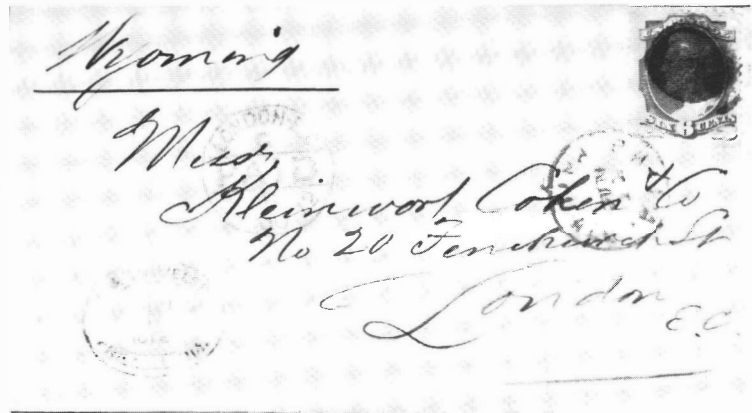 Wyoming
Mess
Kleinwort Cohen & Co
No 20 Fenchurch St
London
E.C.